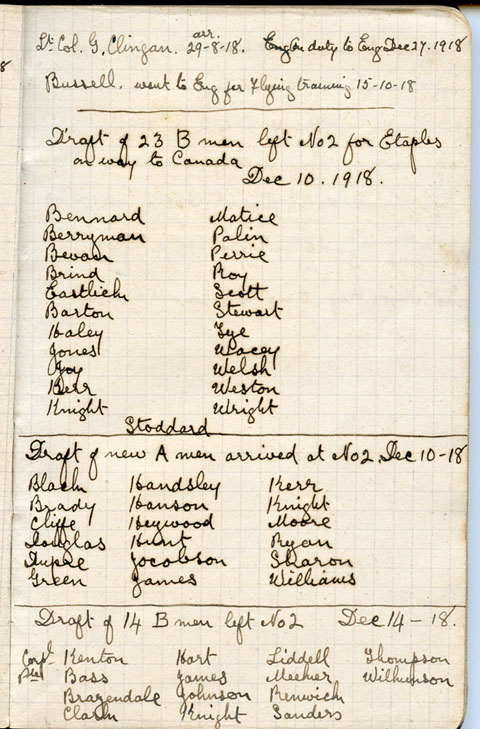 8
Lt Col. G. Clingan. arr. 29-8-18. Eng On duty to Eng Dec 27. 1918
Bussell. went to Eng for Flying training 15-10-18
Draft of 23 B men left No2 for Etaples
on way to Canada
Dec 10. 1918.
Bennard Matice
Berryman Palin
Bevan Perrie
Brind Roy
Eastlick Scott
Barton Stewart
Haley Tye
Jones Wacey
Joy Welsh
Kerr Weston
Knight Wright
Stoddard
Draft of new A men arrived at No2. Dec 10-18
Black Handsley Kerr
Brady Hanson Knight
Cliffe Heywood Moore
Douglas Hunt Ryan
Dupre Jocobson Sharon
Green James Williams
Draft of 14 B men left No2 Dec 14-18.
Corpl Kenton Hart Liddell Thompson
Bass James Meeker Wilkinson
Brazendale Johnson Renwick
Clark Knight Sanders